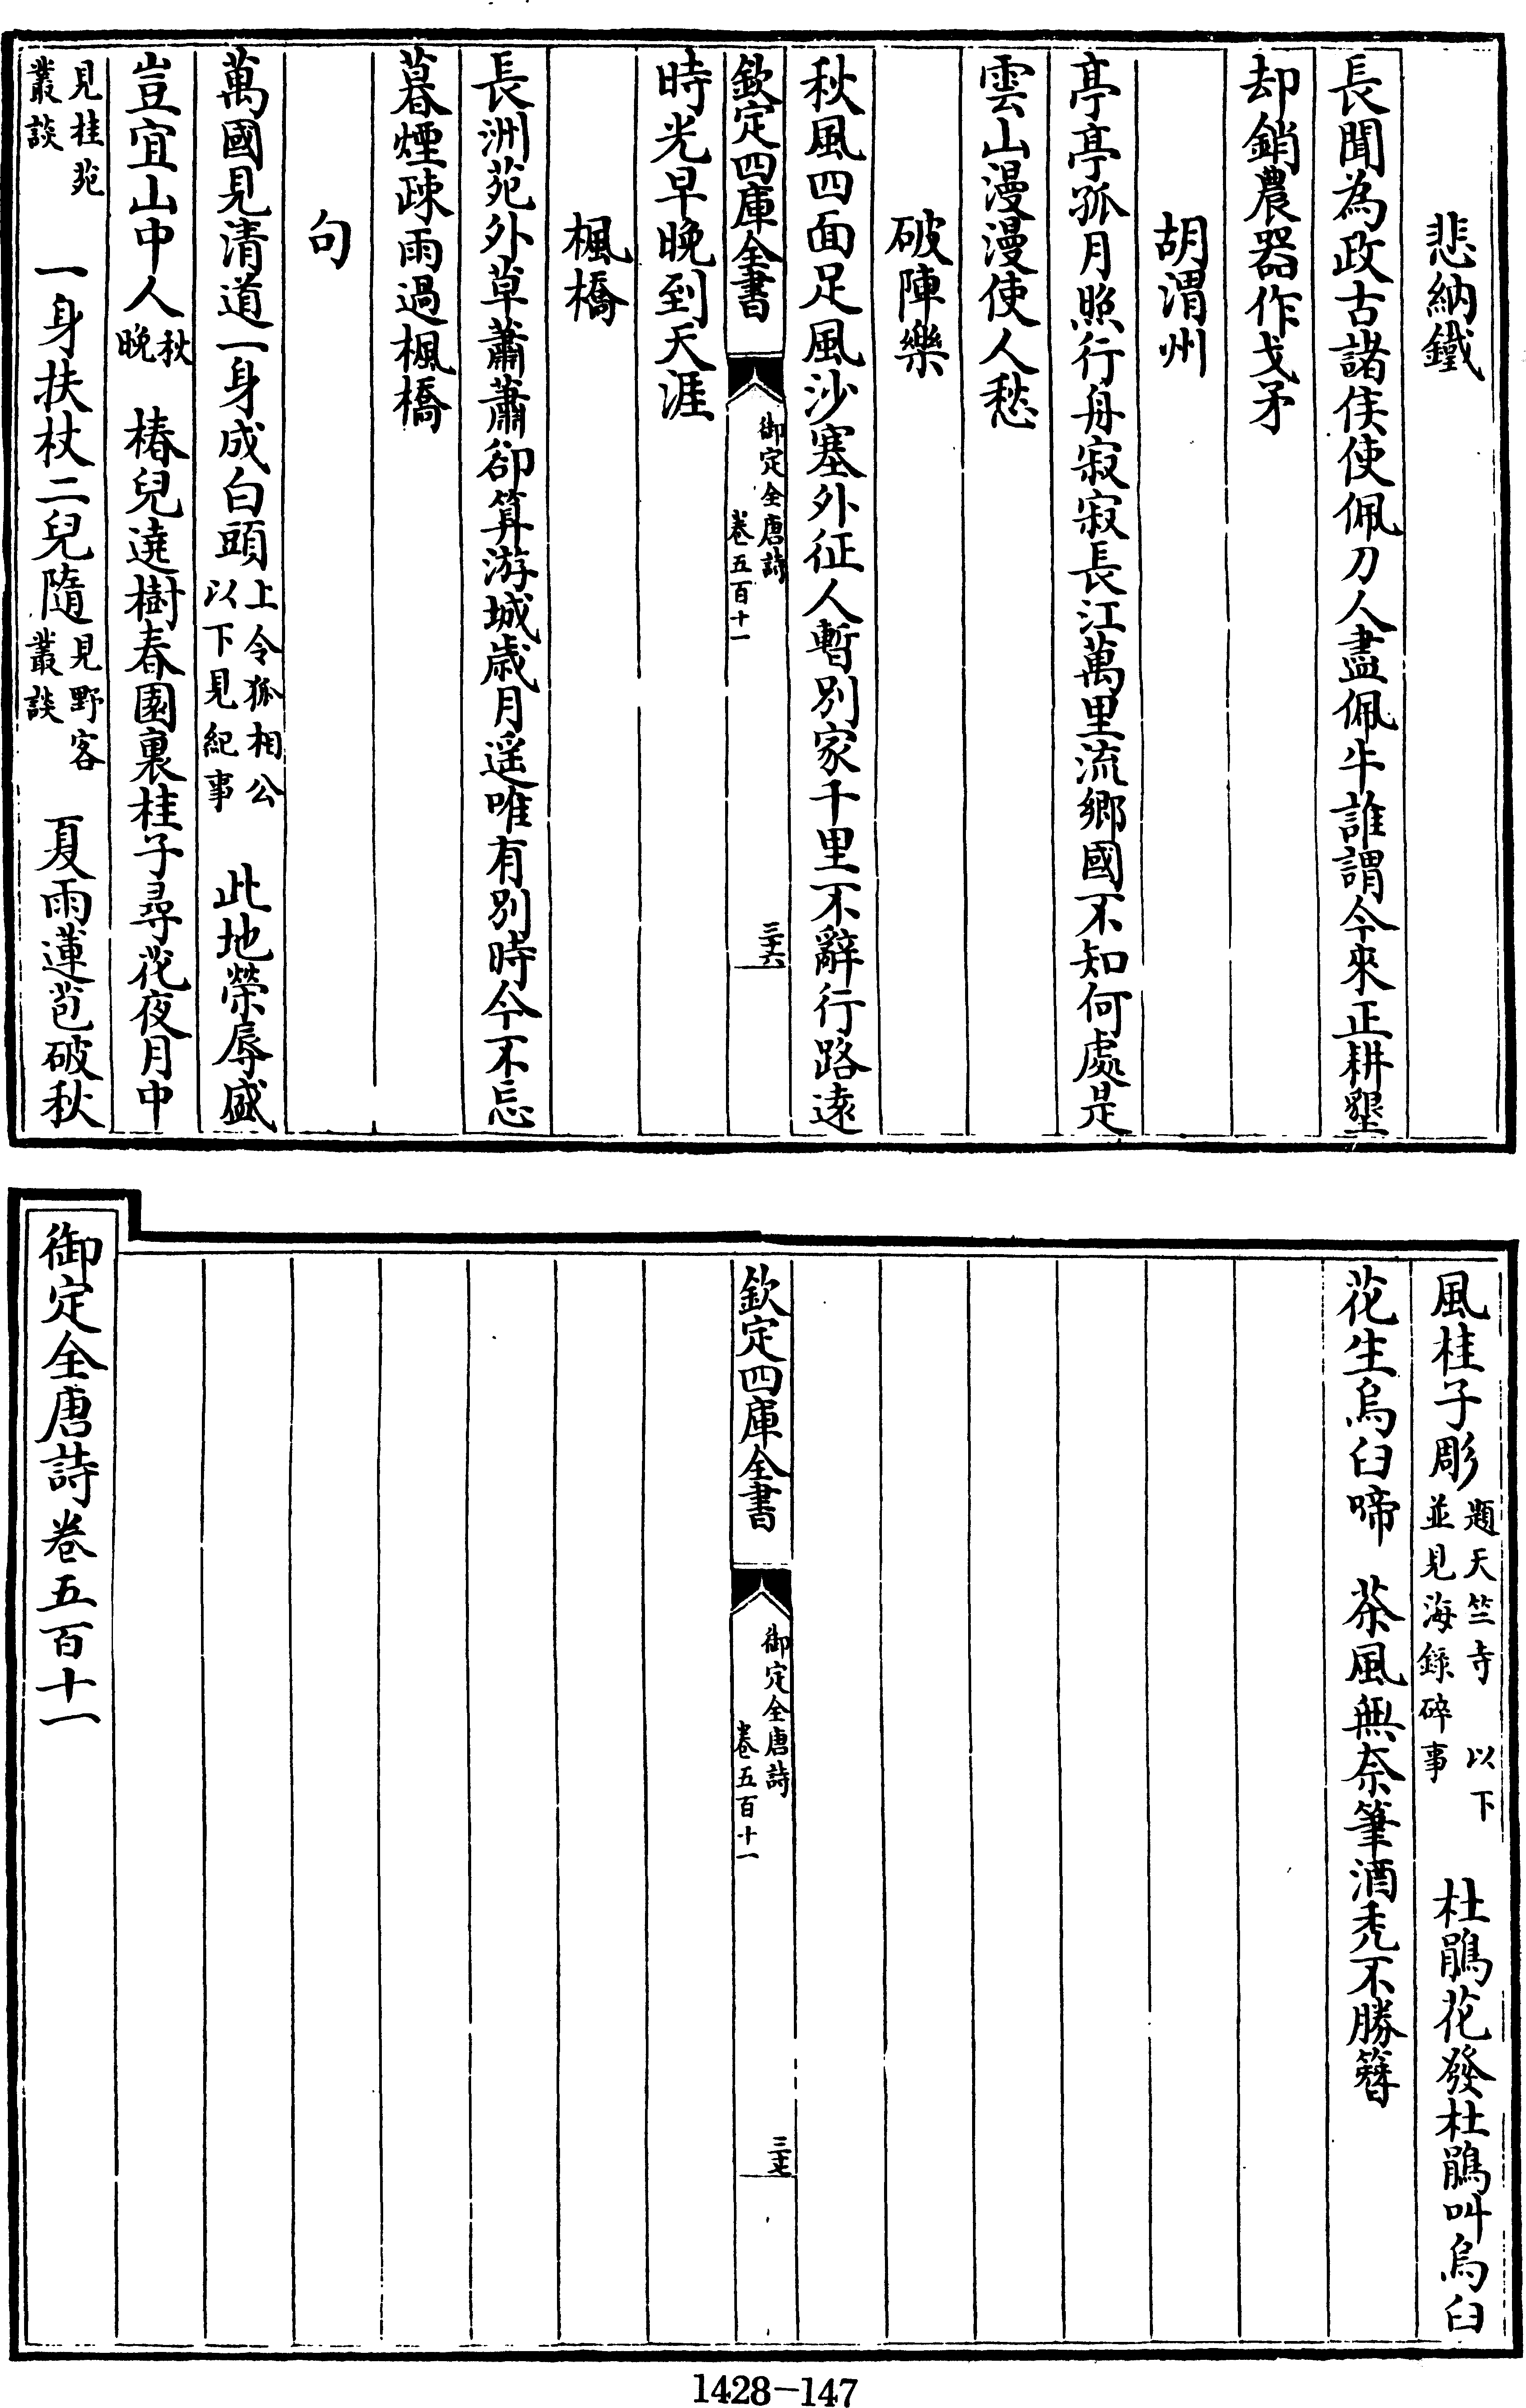 悲納鐵
長聞為政古諸侯使佩刀人盡佩牛誰謂今來正耕墾
却銷農器作戈矛
胡渭州
亭亭孤月照行舟寂寂長江萬里流鄉國不知何處是
雲山漫漫使人愁
破陣樂
秋風四面足風沙塞外征人暫別家千里不辭行路遠
欽定四庫全書
御定全唐詩
卷五百十一
三十六
時光早晚到天涯
楓橋
長洲苑外草蕭蕭卻算游城歲月遥唯有別時今不忘
暮煙疎雨過楓橋
句
萬國見清道一身成白頭上令狐相公以下見紀事 此地榮辱盛
豈宜山中人秋晚 椿兒遶樹春園裏桂子尋花夜月中
見桂苑叢談 一身扶杖二兒隨見野客叢談 夏雨蓮苞破秋
風桂子彫題天竺寺 以下並見海錄碎事 杜鵑花發杜鵑叫烏臼
花生烏臼啼 茶風無奈筆酒禿不勝簪
欽定四庫全書
御定全唐詩
卷五百十一
三十七
御定全唐詩卷五百十一
1428-147